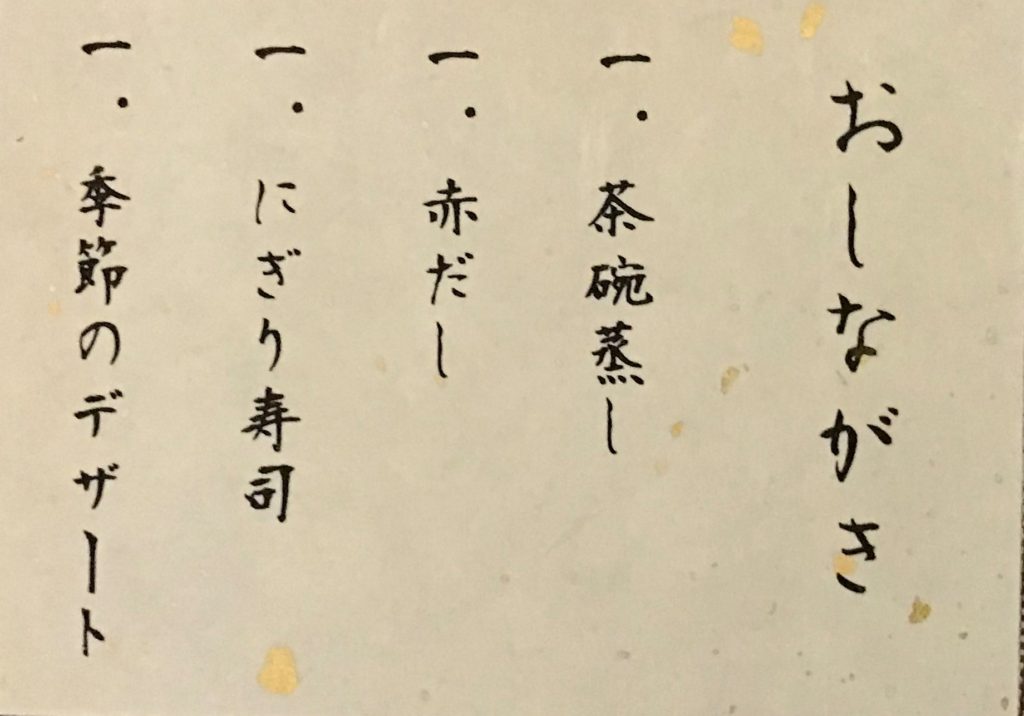 おしながき
一．茶碗蒸し
一．赤だし
一．にぎり寿司
一．季節のデザート